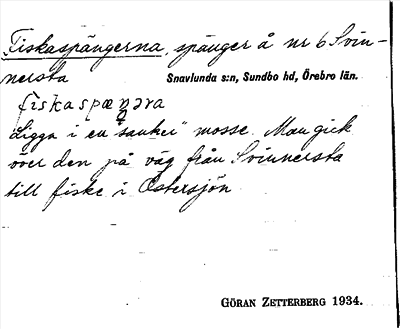 Fiskaspångerna, spånger å nr 6 Svin-
nersta Snavlunda s:n, Sundbo hd, Örebro län.
fiskaspæŋəra
Ligga i en "sanker" mosse. Man gick
över den på väg från Svinnersta
till fiske i Östersjön
GÖRAN ZETTERBERG 1934.